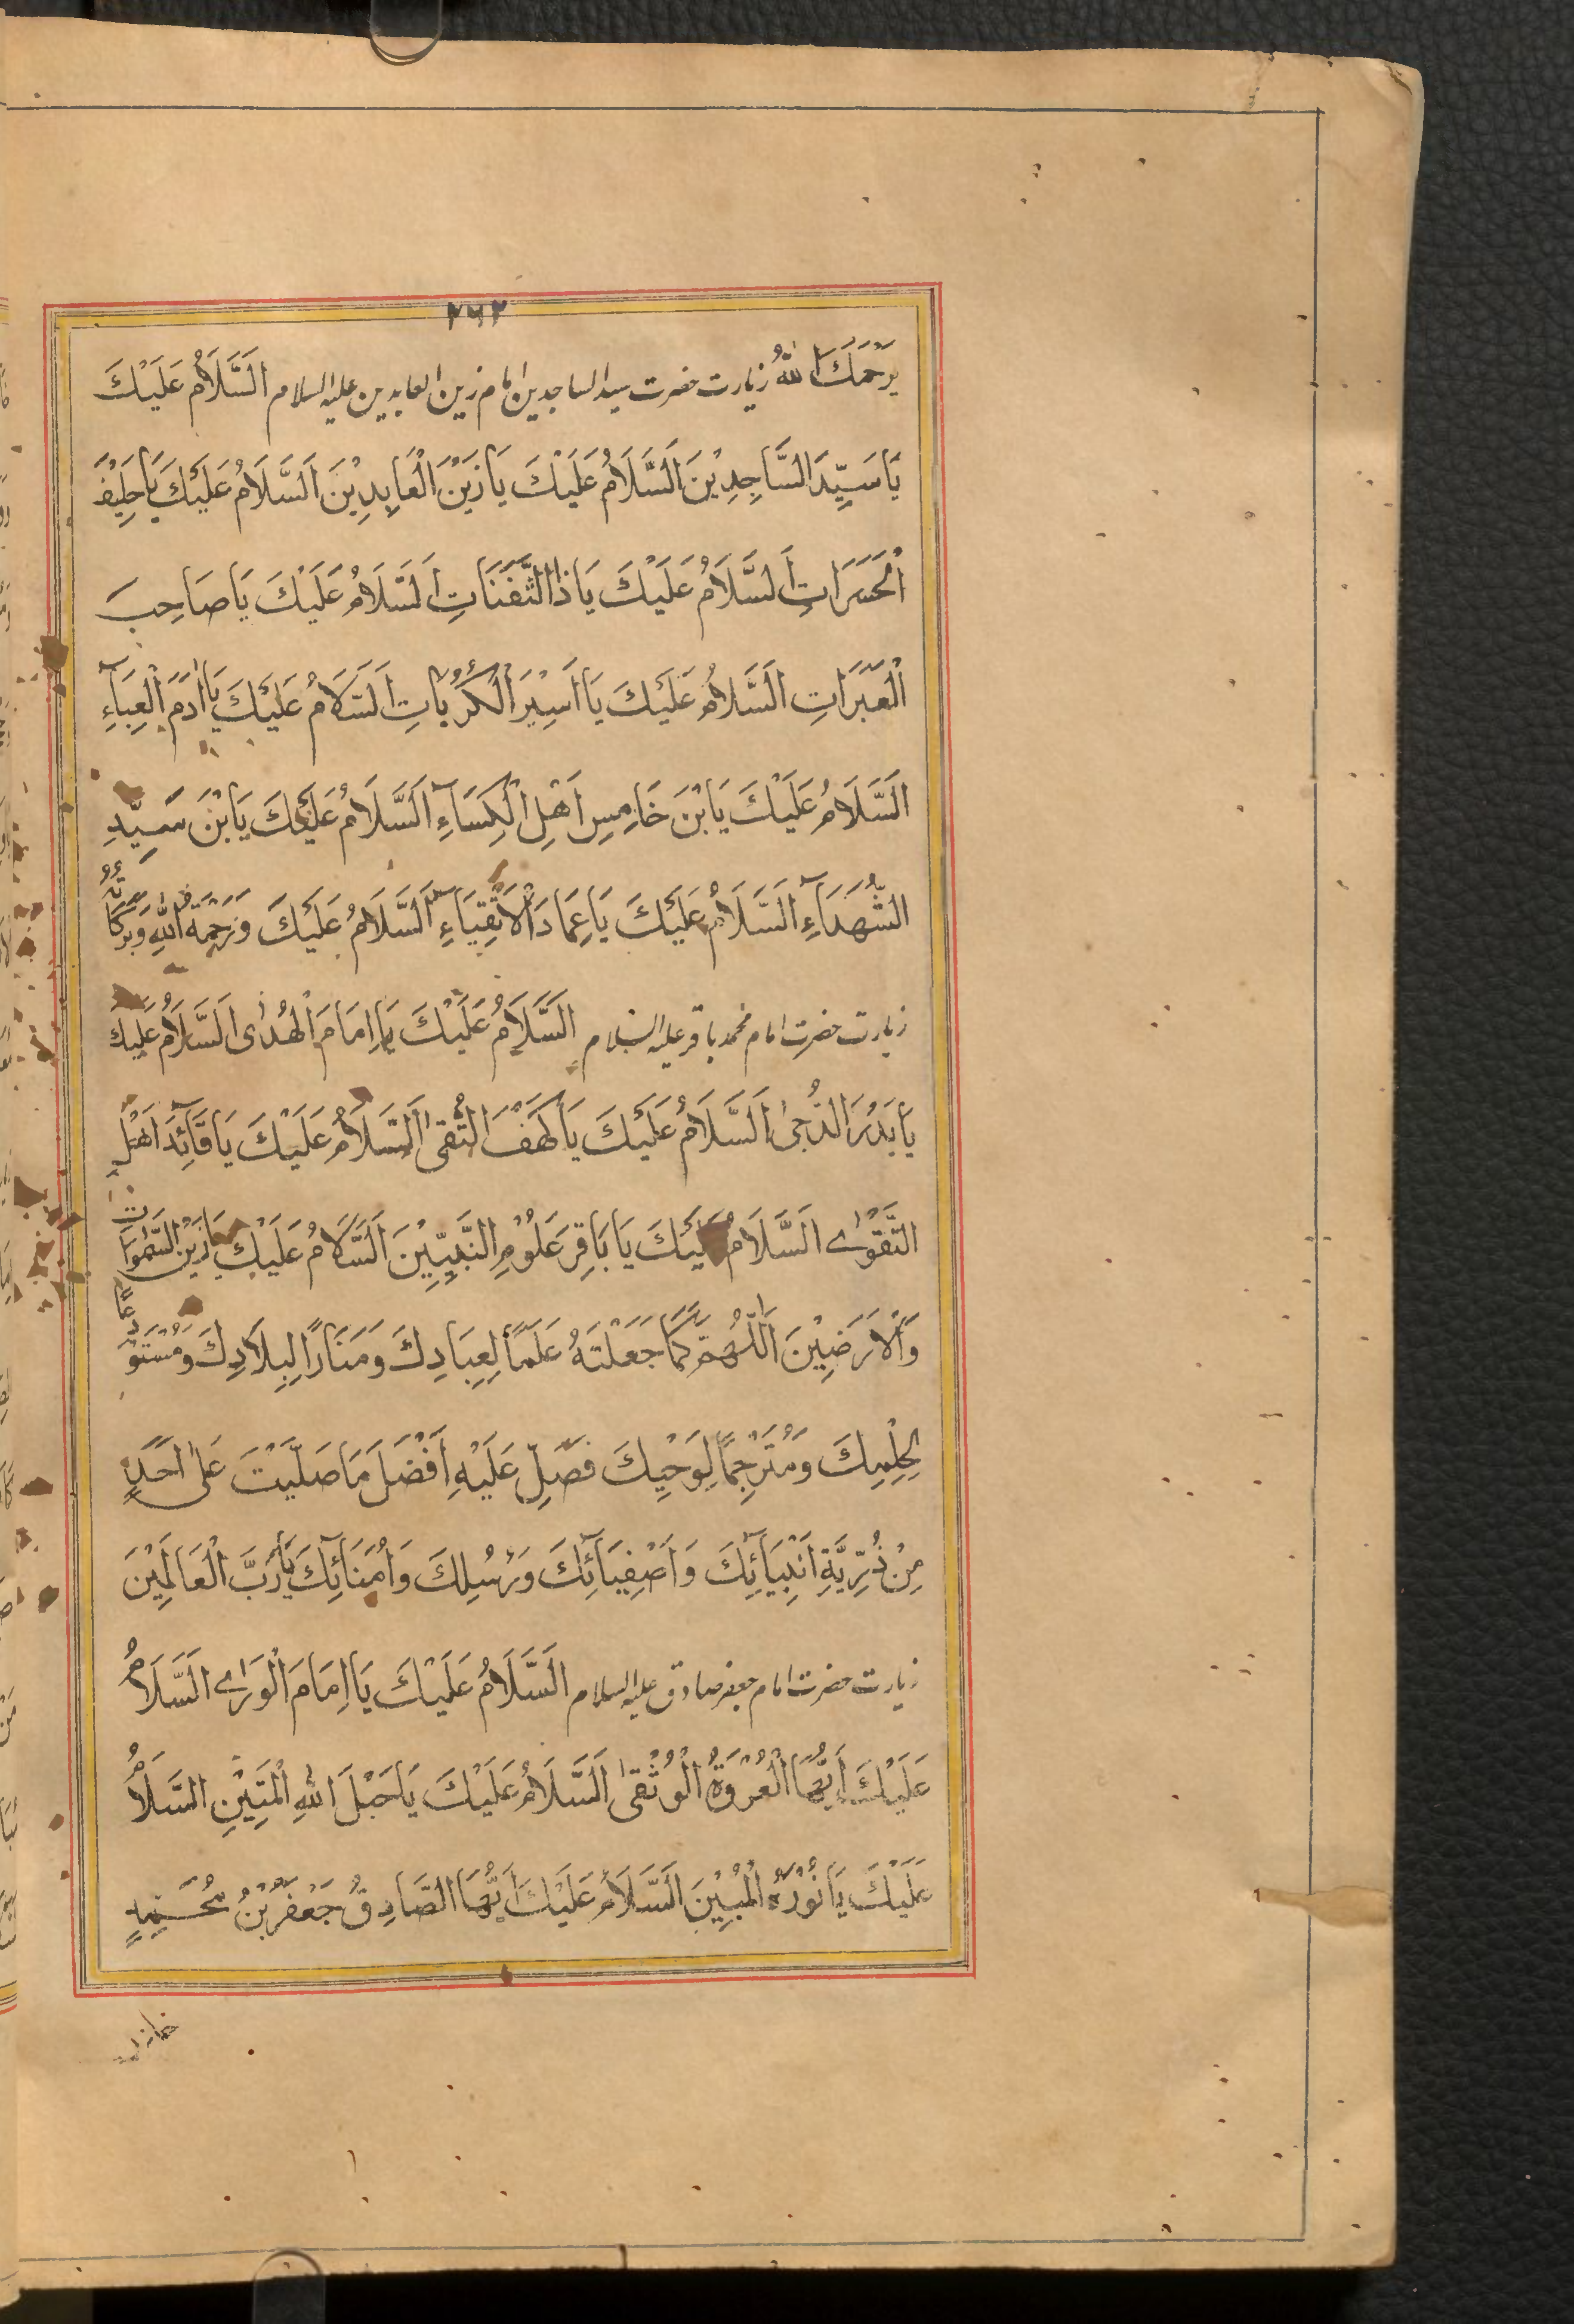 ٢٦٢
يَرْحَمُكَ اللهُ زیارت حضرت سید الساجدین امام زین العابدین علیه السلام اَلسَّلَامُ عَلَيْكَ
يَا سَيِّدَ السَّاجِدِيْنَ اَلسَّلَامُ عَلَيْكَ يَا زَيْنَ الْعَابِدِيْنَ اَلسَّلَامُ عَلَيْكَ يَا حَلِيْفَ
الْحَسَرَاتِ اَلسَّلَامُ عَلَيْكَ يَا ذَا الثَّفَنَاتِ اَلسَّلَامُ عَلَيْكَ يَا صَاحِبَ
الْعَبَرَاتِ اَلسَّلَامُ عَلَيْكَ يَا اَسِيْرَ الْكُرُبَاتِ اَلسَّلَامُ عَلَيْكَ يَا اٰدَمَ الْعِبَآءِ
اَلسَّلَامُ عَلَيْكَ يَا بْنَ خَامِسِ اَهْلِ الْكِسَآءِ اَلسَّلَامُ عَلَيْكَ يَا بْنَ سَيِّدِ
الشُّهَدَآءِ اَلسَّلَامُ عَلَيْكَ يَا عِمَادَ الْاَتْقِيَآءِ اَلسَّلَامُ عَلَيْكَ وَرَحْمَةُ اللهِ وَبَرَكَاتُهُ
زیارت حضرت امام محمد باقر علیه السلام اَلسَّلَامُ عَلَيْكَ يَا اِمَامَ الْهُدٰى اَلسَّلَامُ عَلَيْكَ
يَا بَدْرَ الدُّجىٰ اَلسَّلَامُ عَلَيْكَ يَا كَهَفَ التُّقىٰ اَلسَّلَامُ عَلَيْكَ يَا قَآئِدَ اَهْلِ
التَّقْوٰى اَلسَّلَامُ عَلَيْكَ يَا بَاقِرَ عُلُوْمِ النَّبِيِّيْنَ اَلسَّلَامُ عَلَيْكَ يَا زَيْنَ السَّمٰوَاتِ
وَالْاَرَضِيْنَ اَللّٰهُمَّ كَمَا جَعَلْتَهُ عَلَمًا لِعِبَادِكَ وَمَنَارًا لِبِلَادِكَ وَمُسْتَوْدَعًا
لِحِلْمِكَ وَمُتَرْجِمًا لِوَحْيِكَ فَصَلِّ عَلَيْهِ اَفْضَلَ مَا صَلَّيْتَ عَلىٰ اَحَدٍ
مِنْ ذُرِّيَّةِ اَنْبِيَآئِكَ وَاَصْفِيَآئِكَ وَرُسُلِكَ وَاُمَنَآئِكَ يَا رَبَّ الْعَالَمِيْنَ
زیارت حضرت امام جعفر صادق علیه السلام اَلسَّلَامُ عَلَيْكَ يَا اِمَامَ الْوَرٰى اَلسَّلَامُ
عَلَيْكَ اَيُّهَا الْعُرْوَةُ الْوُثْقىٰ اَلسَّلَامُ عَلَيْكَ يَا حَبْلَ اللهِ الْمَتِيْنِ السَّلَامُ
عَلَيْكَ يَا نُوْرَهُ الْمُبِيْنَ اَلسَّلَامُ عَلَيْكَ اَيُّهَا الصَّادِقُ جَعْفَرَ بْنُ مُحَمَّدٍ